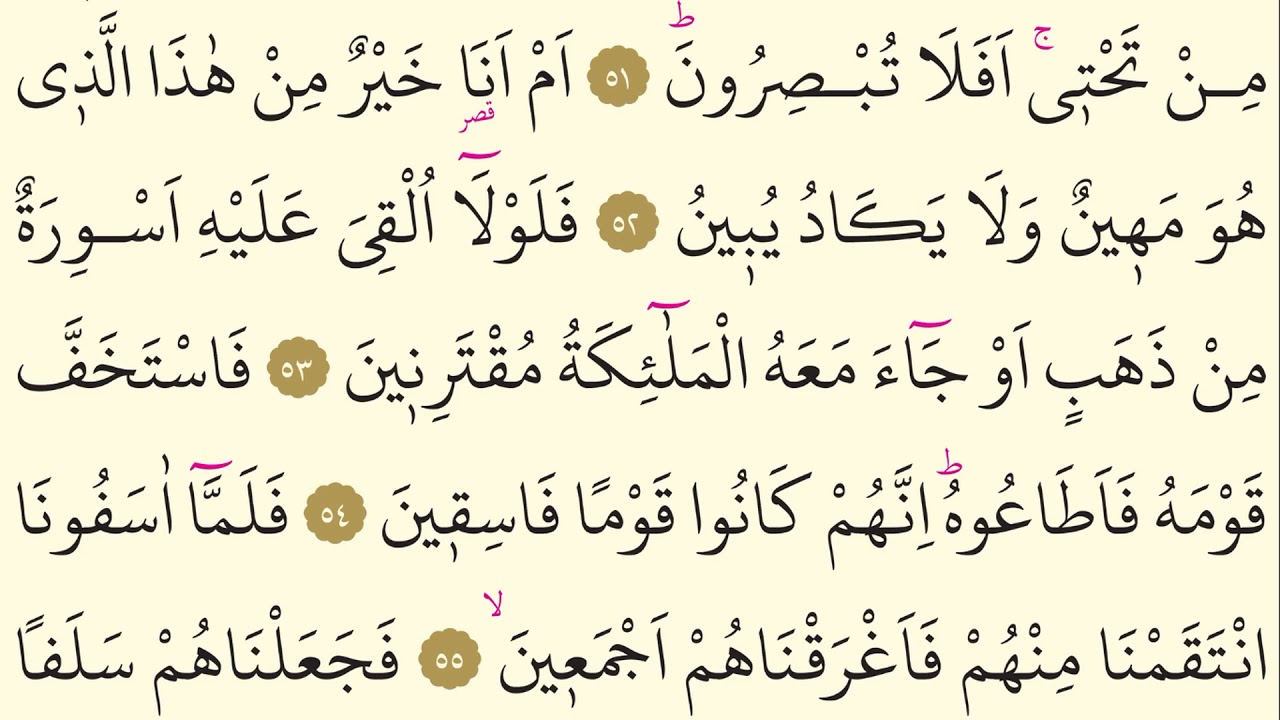 مِنْ تَحْتٖى ۚ اَفَلَا تُبْصِرُونَ ۜ ٥١ اَمْ اَنَا۬ خَيْرٌ مِنْ هٰذَا الَّذٖى
هُوَ مَهٖينٌ وَلَا يَكَادُ يُبٖينُ ٥٢ فَلَوْلَٓا اُلْقِىَ عَلَيْهِ اَسْوِرَةٌ
مِنْ ذَهَبٍ اَوْ جَٓاءَ مَعَهُ الْمَلٰٓئِكَةُ مُقْتَرِنٖينَ ٥٣ فَاسْتَخَفَّ
قَوْمَهُ فَاَطَاعُوهُ ؕ اِنَّهُمْ كَانُوا قَوْمًا فَاسِقٖينَ ٥٤ فَلَمَّٓا اٰسَفُونَا
انْتَقَمْنَا مِنْهُمْ فَاَغْرَقْنَاهُمْ اَجْمَعٖينَ ۙ ٥٥ فَجَعَلْنَاهُمْ سَلَفًا